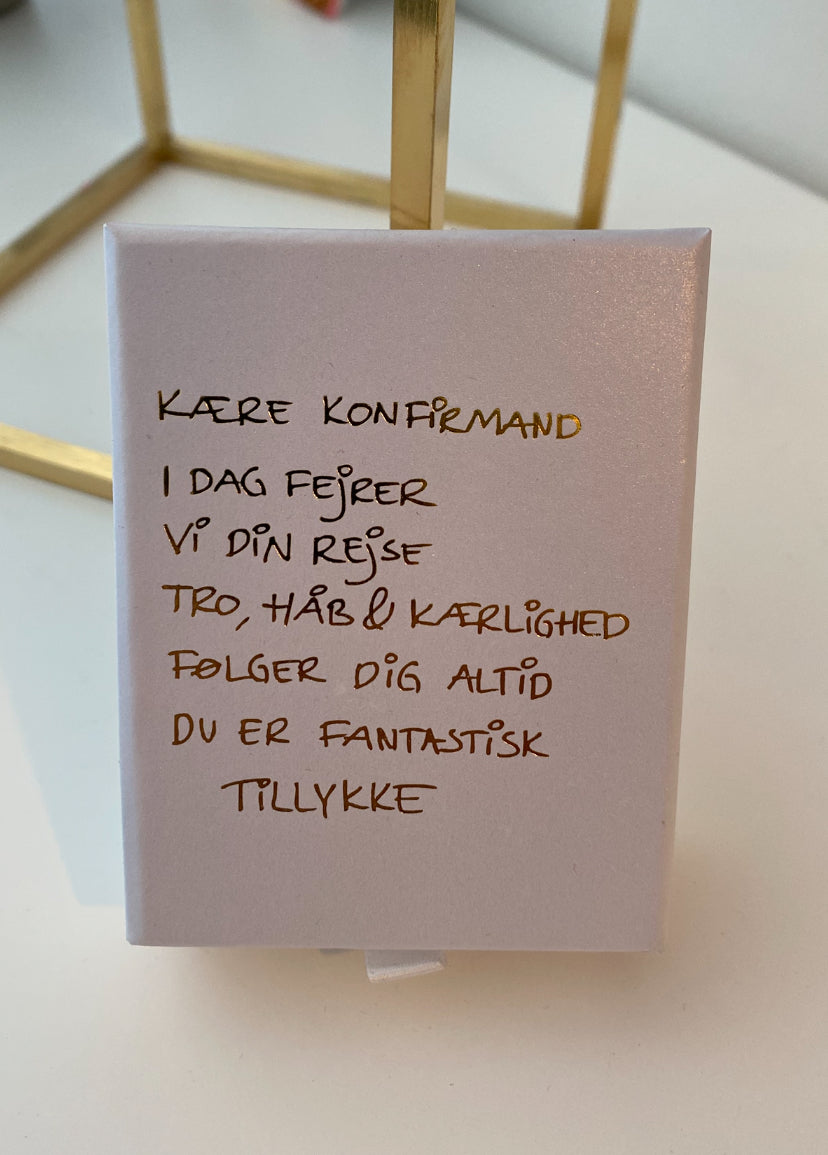 KÆRE KONFiRMAND
I DAG FEjRER
Vi DiN REjSE
TRO, HÅB & KÆRLiGHED
FØLGER DiG ALTiD
DU ER FANTASTiSK
TiLLYKKE